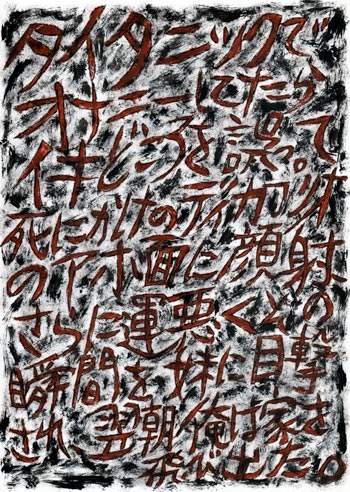 タイタニックで、
オナニーしてたら
イキどころを誤って
死にかけのディカプリオ
のアホ面に顔射
さらに運悪くその
瞬間を妹に目撃
され、翌朝俺は家を
飛び出した。